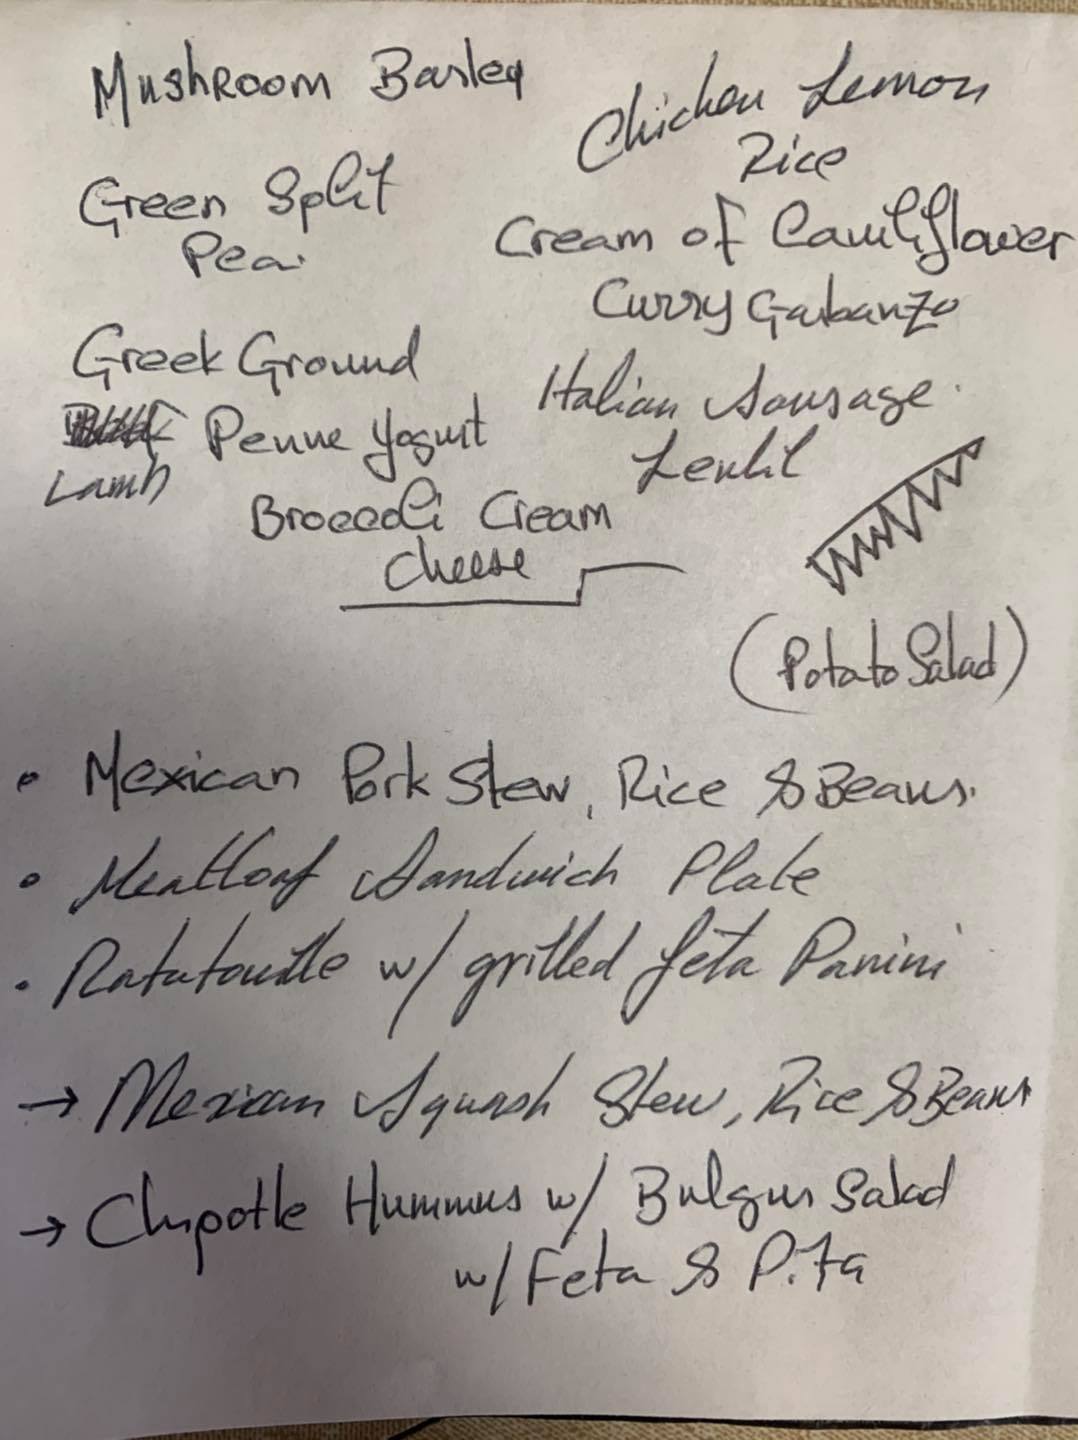 Mushroom Barley
Green Split
Pea
Greek Ground
Penne Yogurt
Lamb
Broccoli Cream
Cheese
Chicken Lemon
Rice
Cream of Cauliflower
Curry Garbanzo
Italian Sausage
Lentil
(Potato Salad)
• Mexican Pork Stew, Rice & Beans.
• Meatloaf Sandwich Plate
• Ratatouille w/ grilled feta Panini
→ Mexican Squash Stew, Rice & Beans
→ Chipotle Hummus w/ Bulgur Salad
w/ Feta & Pita